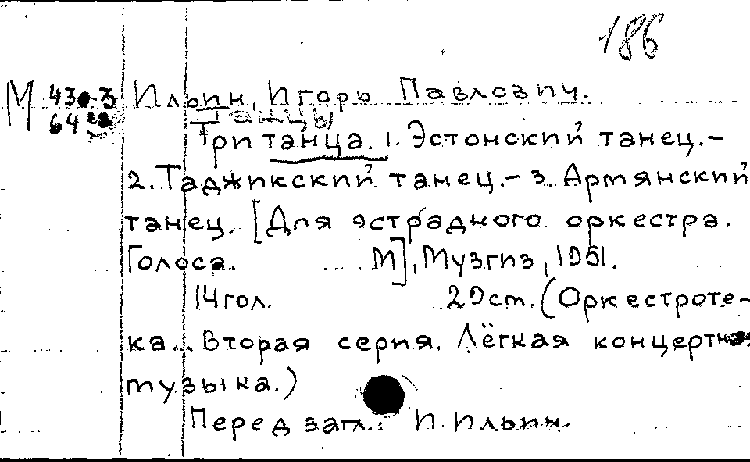 186
М 430-3 Ильин, Игорь Павлович.
64 Танцы
Три танца. 1. Эстонский танец. –
2. Таджикский танец. – 3. Армянский
танец. [Для эстрадного оркестра.
Голоса. М], Музгиз, 1951.
14 гол. 29 cm. (Оркестроте-
ка. Вторая серия. Лёгкая концертная
музыка.)
Перед загл.: И. Ильин.